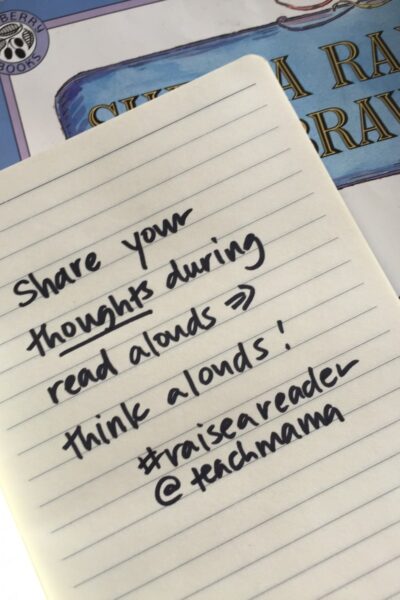 BERRY
BOOKS
RA
BRAV
Share your
thoughts during
read alouds =>
think alouds!
#raiseareader
@teachmama